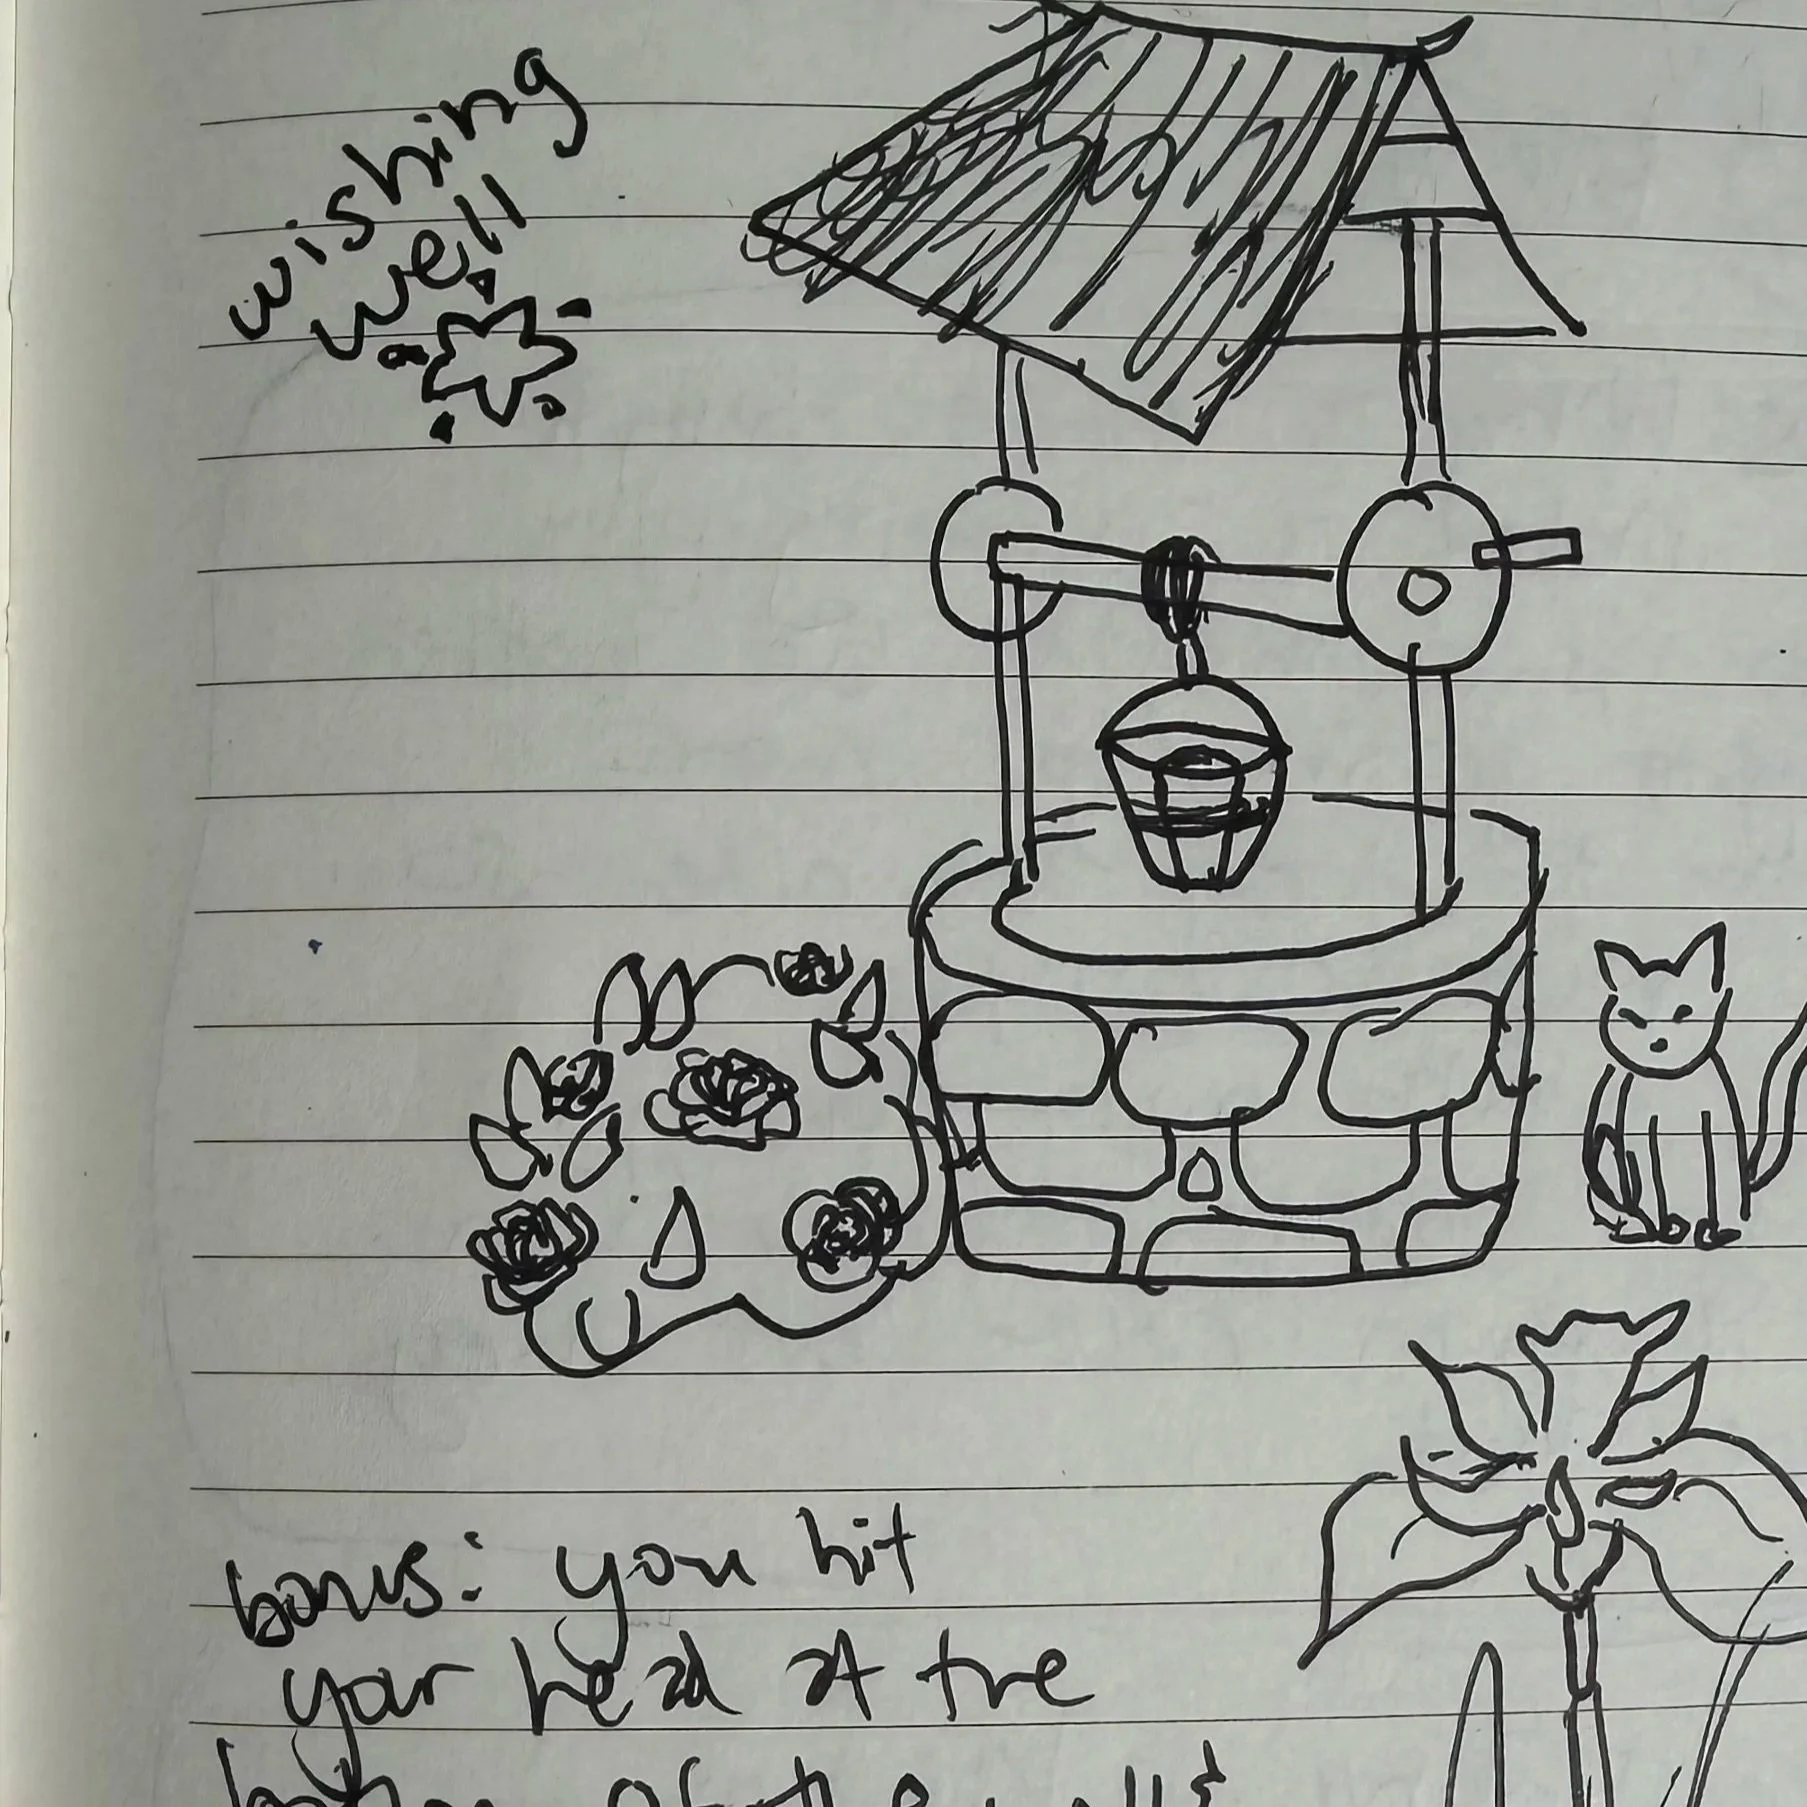 wishing
well
bonus: you hit
your head at the
bottom of the well &